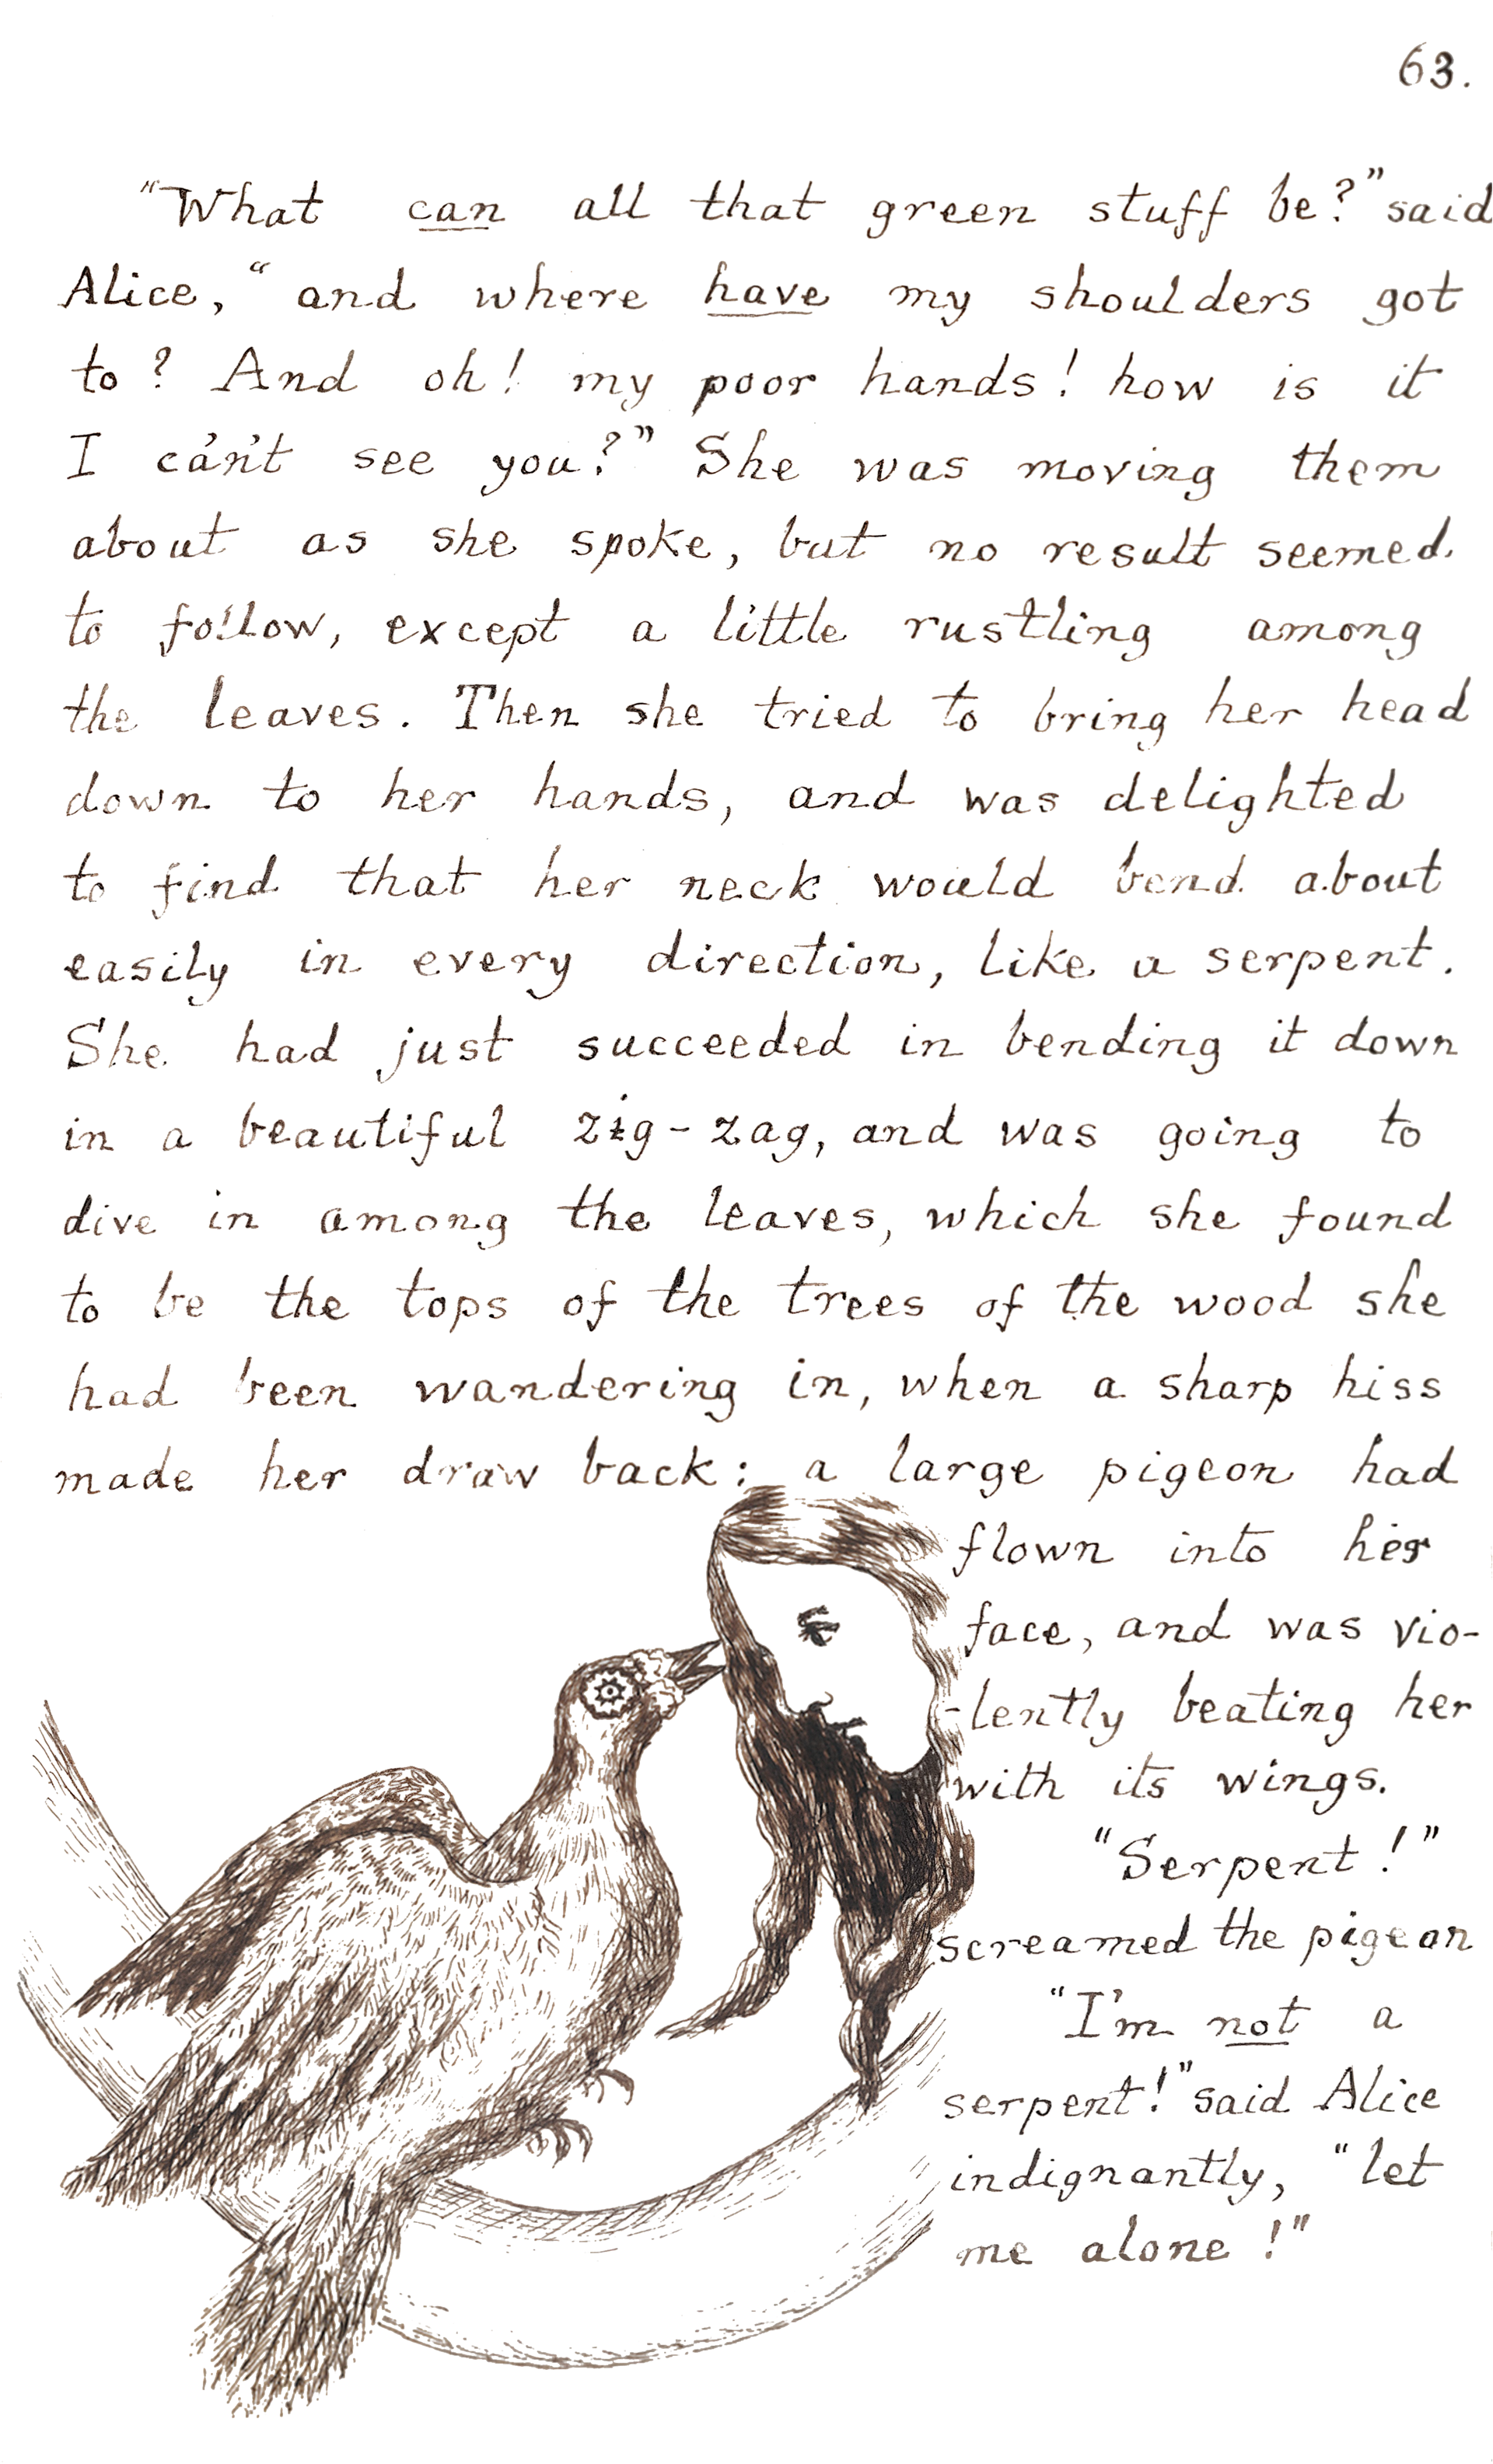 63.
"What can all that green stuff be?" said
Alice, "and where have my shoulders got
to? And oh! my poor hands! how is it
I ca'n't see you?" She was moving them
about as she spoke, but no result seemed
to follow, except a little rustling among
the leaves. Then she tried to bring her head
down to her hands, and was delighted
to find that her neck would bend about
easily in every direction, like a serpent.
She had just succeeded in bending it down
in a beautiful zig-zag, and was going to
dive in among the leaves, which she found
to be the tops of the trees of the wood she
had been wandering in, when a sharp hiss
made her draw back: a large pigeon had
flown into her
face, and was vio-
-lently beating her
with its wings.
"Serpent!"
screamed the pigeon
"I'm not a
serpent!" said Alice
indignantly, "let
me alone!"